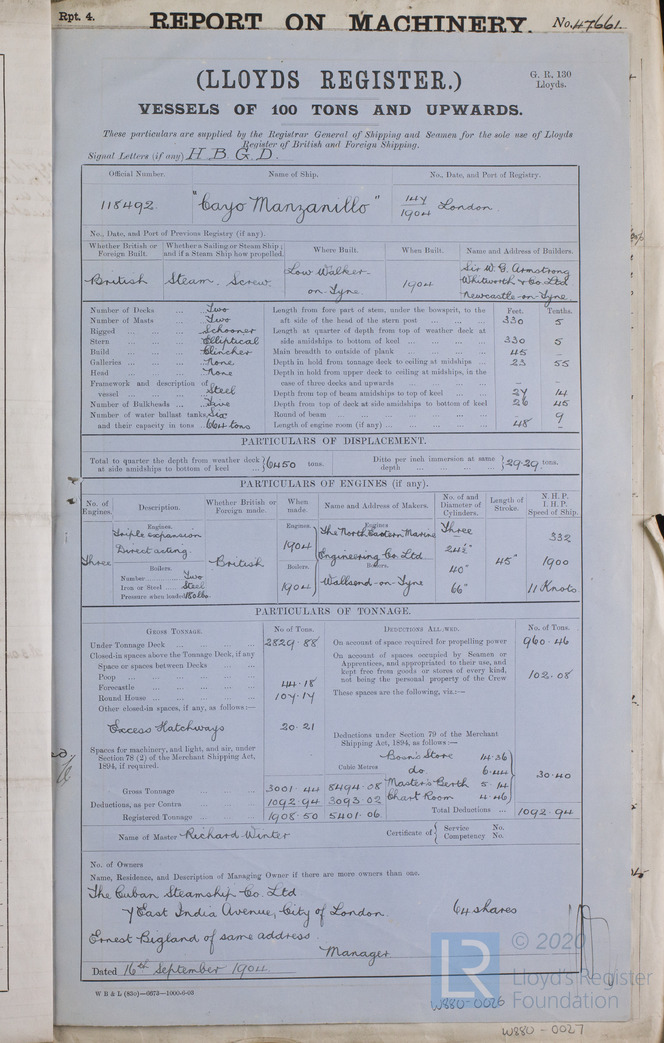 Rpt. 4.
REPORT ON MACHINERY.
No. 47661.
(LLOYDS REGISTER.)
G. R. 130
Lloyds.
VESSELS OF 100 TONS AND UPWARDS.
These particulars are supplied by the Registrar General of Shipping and Seamen for the sole use of Lloyds
Register of British and Foreign Shipping.
Signal Letters (if any) H B G D.
Official Number. Name of Ship. No., Date, and Port of Registry.
118492. "Cayo Manzanillo" 147/1904 London.
No., Date, and Port of Previous Registry (if any).
Whether British or Foreign Built. Whether a Sailing or Steam Ship; and if a Steam Ship how propelled. Where Built. When Built. Name and Address of Builders.
British Steam. Screw. Low Walker-on-Tyne. 1904 Sir W. G. Armstrong Whitworth & Co. Ltd Newcastle-on-Tyne.
Number of Decks ... Two
Number of Masts ... Two
Rigged ... Schooner
Stern ... Elliptical
Build ... Clincher
Galleries ... None
Head ... None
Framework and description of vessel ... Steel
Number of Bulkheads ... Five
Number of water ballast tanks, Six
and their capacity in tons. 664 tons
Feet. Tenths.
Length from fore part of stem, under the bowsprit, to the aft side of the head of the stern post ... 330 5
Length at quarter of depth from top of weather deck at side amidships to bottom of keel ... 330 5
Main breadth to outside of plank ... 45 -
Depth in hold from tonnage deck to ceiling at midships ... 23 55
Depth in hold from upper deck to ceiling at midships, in the case of three decks and upwards ... - -
Depth from top of beam amidships to top of keel ... 27 14
Depth from top of deck at side amidships to bottom of keel 26 45
Round of beam ... 9
Length of engine room (if any) ... 48 -
PARTICULARS OF DISPLACEMENT.
Total to quarter the depth from weather deck at side amidships to bottom of keel ... } 6450 tons. Ditto per inch immersion at same depth ... } 29.29 tons.
PARTICULARS OF ENGINES (if any).
No. of Engines. Description. Whether British or Foreign made. When made. Name and Address of Makers. No. of and Diameter of Cylinders. Length of Stroke. N.H.P. I.H.P. Speed of Ship.
Three
Engines.
Triple expansion
Direct acting.
Boilers.
Number ... Two
Iron or Steel ... Steel
Pressure when loaded 180 lbs.
British
Engines.
1904
Boilers.
1904
Engines.
The North Eastern Marine
Engineering Co. Ltd
Boilers.
Wallsend-on-Tyne
Three
24½"
40"
66"
45"
332
1900
11 Knots
PARTICULARS OF TONNAGE.
GROSS TONNAGE. No of Tons. DEDUCTIONS ALLOWED. No. of Tons.
Under Tonnage Deck ... 2829.88
Closed-in spaces above the Tonnage Deck, if any
Space or spaces between Decks ...
Poop ...
Forecastle ... 44.18
Round House ... 107.17
Other closed-in spaces, if any, as follows:—
Excess Hatchways 20.21
Spaces for machinery, and light, and air, under Section 78 (2) of the Merchant Shipping Act, 1894, if required.
Cubic Metres
Gross Tonnage ... 3001.44 8494.08
Deductions, as per Contra ... 1092.94 3093.02
Registered Tonnage ... 1908.50 5401.06.
On account of space required for propelling power 960.46
On account of spaces occupied by Seamen or Apprentices, and appropriated to their use, and kept free from goods or stores of every kind, not being the personal property of the Crew 102.08
These spaces are the following, viz.:—
Deductions under Section 79 of the Merchant Shipping Act, 1894, as follows:—
Bosn's Store 14.36
do. 6.44
Master's Berth 5.14
Chart Room 4.46
30.40
Total Deductions ... 1092.94
Name of Master Richard Winter Certificate of { Service No. Competency No.
No. of Owners
Name, Residence, and Description of Managing Owner if there are more owners than one.
The Cuban Steamship Co. Ltd
7 East India Avenue, City of London. 64 shares
Ernest Bigland of same address.
Manager
Dated 16th September 1904.
W B & L (83o)—6673—1000-6-03
LR
© 2020
Lloyd's Register
Foundation
W880-0026
W880-0027